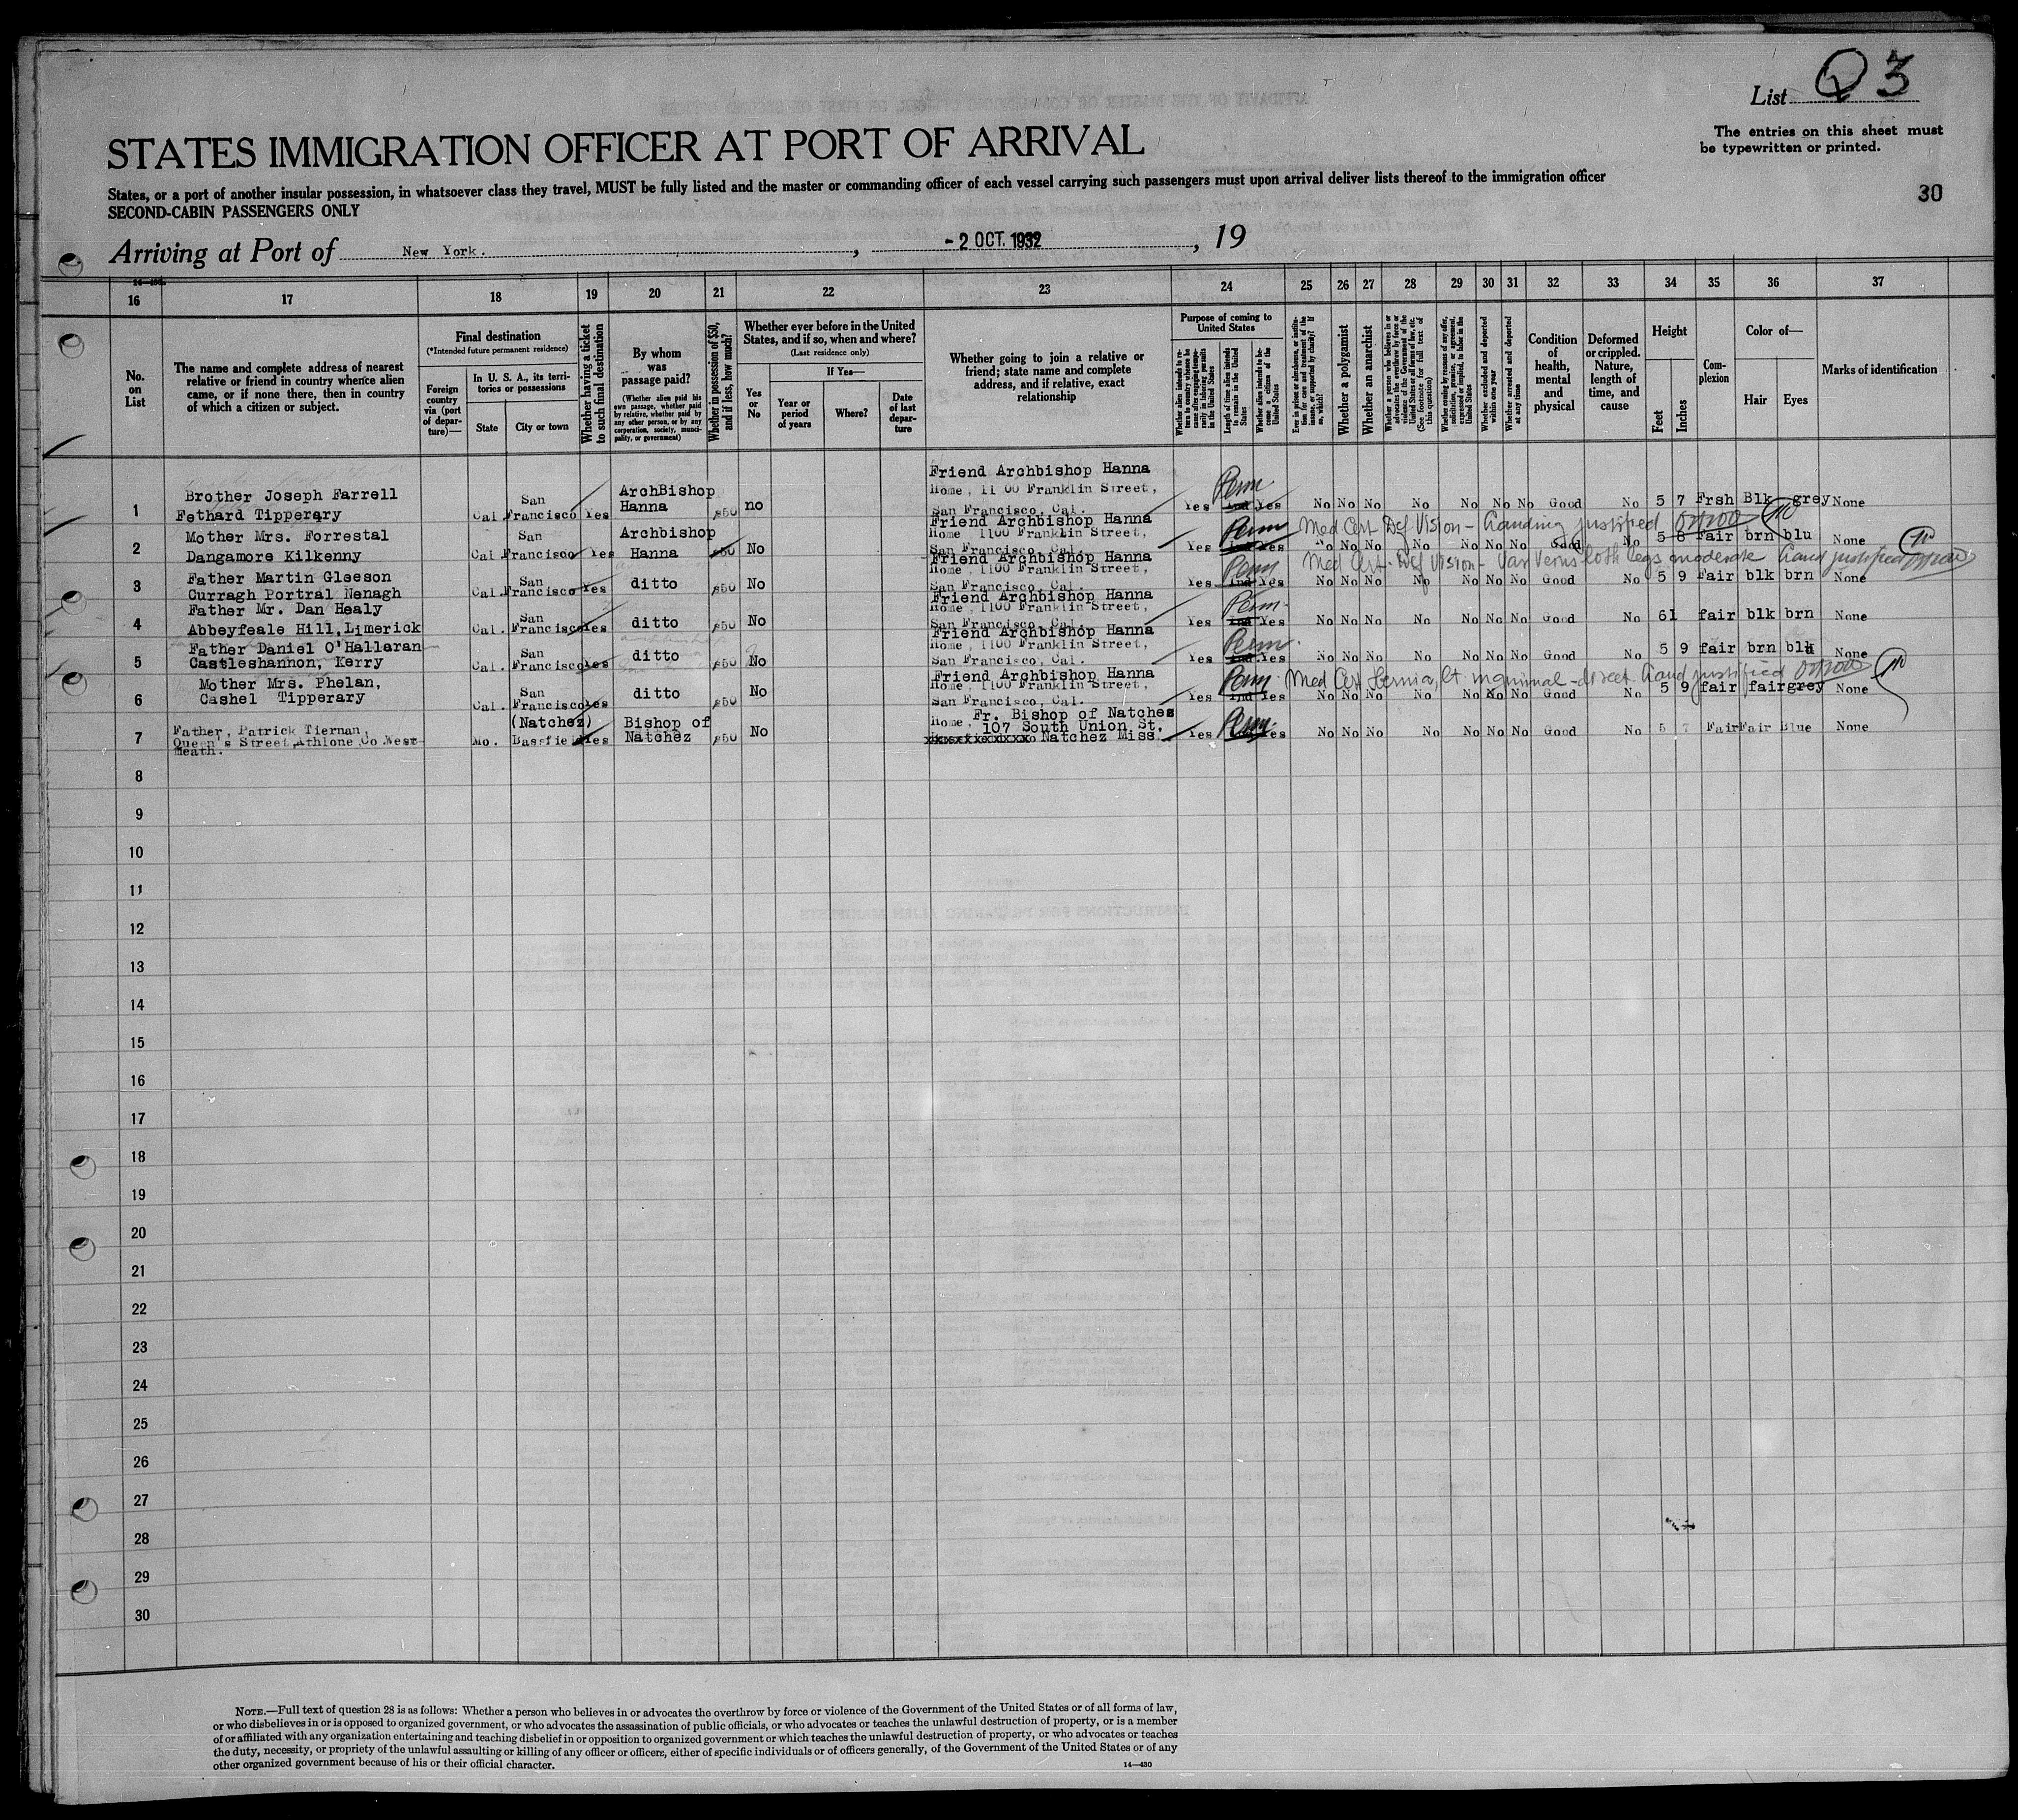 List Q 3
The entries on this sheet must
be typewritten or printed.
STATES IMMIGRATION OFFICER AT PORT OF ARRIVAL
States, or a port of another insular possession, in whatsoever class they travel, MUST be fully listed and the master or commanding officer of each vessel carrying such passengers must upon arrival deliver lists thereof to the immigration officer
SECOND-CABIN PASSENGERS ONLY
30
Arriving at Port of New York. , - 2 OCT. 1932 , 19
16 17 18 19 20 21 22 23 24 25 26 27 28 29 30 31 32 33 34 35 36 37
No.
on
List
The name and complete address of nearest
relative or friend in country whence alien
came, or if none there, then in country
of which a citizen or subject.
Final destination
(*Intended future permanent residence)
Foreign
country
via (port
of depar-
ture)—
In U. S. A., its terri-
tories or possessions
State
City or town
Whether having a ticket
to such final destination
By whom
was
passage paid?
(Whether alien paid his
own passage, whether paid
by relative, whether paid by
any other person, or by any
corporation, society, munici-
pality, or government)
Whether in possession of $50,
and if less, how much?
Whether ever before in the United
States, and if so, when and where?
(Last residence only)
Yes
or
No
If Yes—
Year or
period
of years
Where?
Date
of last
depar-
ture
Whether going to join a relative or
friend; state name and complete
address, and if relative, exact
relationship
Purpose of coming to
United States
Length of time alien intends
to remain in the United
States
Whether alien intends to be-
come a citizen of the
United States
Whether a polygamist
Whether an anarchist
Whether excluded and deported
within one year
Whether arrested and deported
at any time
Condition
of
health,
mental
and
physical
Deformed
or crippled.
Nature,
length of
time, and
cause
Height
Feet
Inches
Com-
plexion
Color of—
Hair
Eyes
Marks of identification
1 Brother Joseph Farrell
Fethard Tipperary
Cal. San Francisco Yes ArchBishop Hanna $50 no
Friend Archbishop Hanna
Home, 1100 Franklin Street,
San Francisco, Cal.
Yes Perm Yes No No No No No No No Good No 5 7 Frsh Blk grey None
2 Mother Mrs. Forrestal
Dangamore Kilkenny
Cal San Francisco Yes Archbishop Hanna $50 No
Friend Archbishop Hanna
Home 1100 Franklin Street,
San Francisco Cal.
Med Cert Def Vision - Landing justified
Yes Perm Yes No No No No No No No Good No 5 8 Fair brn blu None
3 Father Martin Gleeson
Curragh Portral Nenagh
Cal. San Francisco Yes ditto $50 No
Friend Archbishop Hanna
Home, 1100 Franklin Street,
San Francisco, Cal.
Med Cert. Def Vision - Var Veins both legs moderate Land justified
Yes Perm Yes No No No No No No No Good No 5 9 Fair blk brn None
4 Father Mr. Dan Healy
Abbeyfeale Hill, Limerick
Cal. San Francisco Yes ditto $50 No
Friend Archbishop Hanna
Home, 1100 Franklin Street,
San Francisco, Cal.
Yes Perm Yes No No No No No No No Good No 61 fair blk brn None
5 Father Daniel O'Hallaran
Castleshannon, Kerry
Cal. San Francisco Yes ditto $50 No
Friend Archbishop Hanna
Home, 1100 Franklin Street,
San Francisco, Cal.
Yes Perm. Yes No No No No No No No Good No 5 9 fair brn None
6 Mother Mrs. Phelan,
Cashel Tipperary
Cal. San Francisco Yes ditto $50 No
Friend Archbishop Hanna
Home, 1100 Franklin Street,
San Francisco, Cal.
Med Cert Hernia, lt inguinal - direct Land justified
Yes Perm Yes No No No No No No No Good No 5 9 fair fair grey None
7 Father, Patrick Tiernan,
Queen's Street, Athlone, Co West-
Meath.
Mo. (Natchez) Bassfield Yes Bishop of Natchez $50 No
Fr. Bishop of Natches
Home, 107 South Union St.
Natchez Miss.
Yes Perm. Yes No No No No No No No Good No 5 7 Fair Fair Blue None
8
9
10
11
12
13
14
15
16
17
18
19
20
21
22
23
24
25
26
27
28
29
30
NOTE.—Full text of question 28 is as follows: Whether a person who believes in or advocates the overthrow by force or violence of the Government of the United States or of all forms of law,
or who disbelieves in or is opposed to organized government, or who advocates the assassination of public officials, or who advocates or teaches the unlawful destruction of property, or is a member
of or affiliated with any organization entertaining and teaching disbelief in or opposition to organized government or which teaches the unlawful destruction of property, or who advocates or teaches
the duty, necessity, or propriety of the unlawful assaulting or killing of any officer or officers, either of specific individuals or of officers generally, of the Government of the United States or of any
other organized government because of his or their official character.
14—430